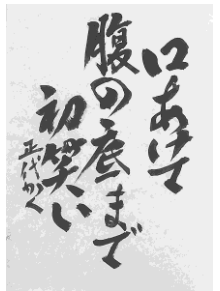 口あけて
腹の底まで
初笑い
正代かく